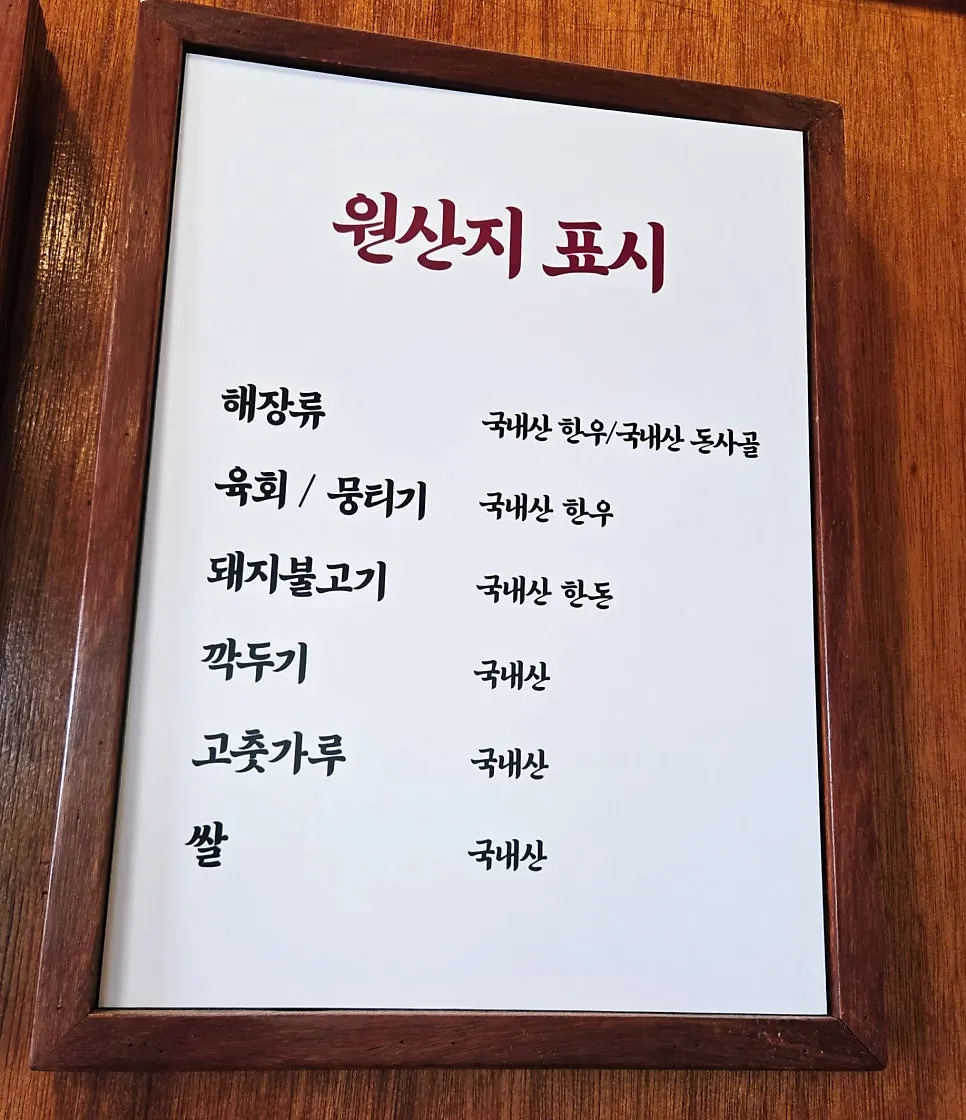 원산지 표시
해장류 국내산 한우/국내산 돈사골
육회 / 뭉티기 국내산 한우
돼지불고기 국내산 한돈
깍두기 국내산
고춧가루 국내산
쌀 국내산